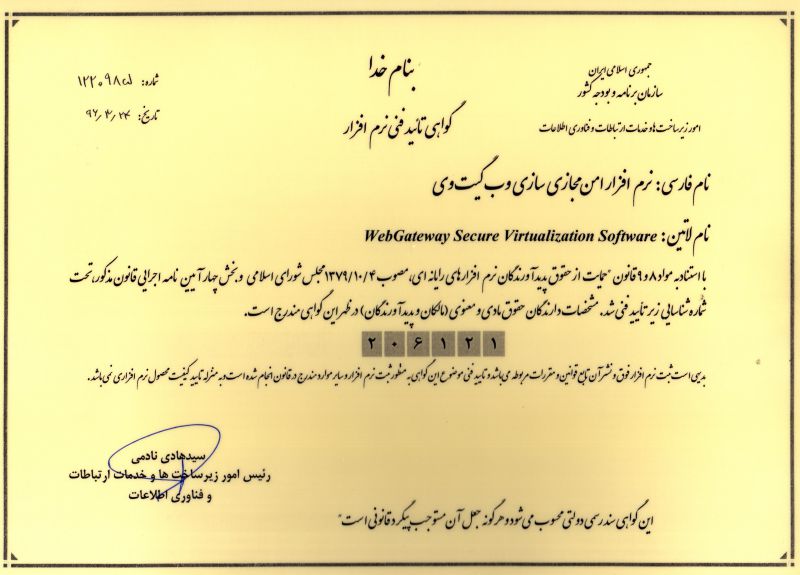 بنام خدا
جمهوری اسلامی ایران
سازمان برنامه و بودجه کشور
امور زیرساخت ها و خدمات ارتباطات و فناوری اطلاعات
شماره: ۱۲۲۰۹۸۵
تاریخ: ۹۶/۳/۲۴
گواهی تائید فنی نرم افزار
نام فارسی: نرم افزار امن مجازی سازی وب گیت وی
نام لاتین: WebGateway Secure Virtualization Software
با استناد به مواد ۸ و ۹ قانون "حمایت از حقوق پدیدآورندگان نرم افزارهای رایانه ای، مصوب ۱۳۷۹/۱۰/۴ مجلس شورای اسلامی و بخش چهار آیین نامه اجرایی قانون مذکور، تحت
شماره شناسایی زیر تأیید فنی شد. مشخصات دارندگان حقوق مادی و معنوی (مالکان و پدیدآورندگان) در ظهر این گواهی مندرج است.
۲۰۶۱۲۱
بدیهی است ثبت نرم افزار فوق و نشر آن تابع قوانین و مقررات مربوطه می باشد و تایید فنی موضوع این گواهی به منظور ثبت نرم افزار و سایر موارد مندرج در قانون انجام شده است و به منزله تایید کیفیت محصول نرم افزاری نمی باشد.
سیدهادی نادمی
رئیس امور زیرساخت ها و خدمات ارتباطات
و فناوری اطلاعات
این گواهی سند رسمی دولتی محسوب می شود و هرگونه جعل آن مستوجب پیگرد قانونی است"